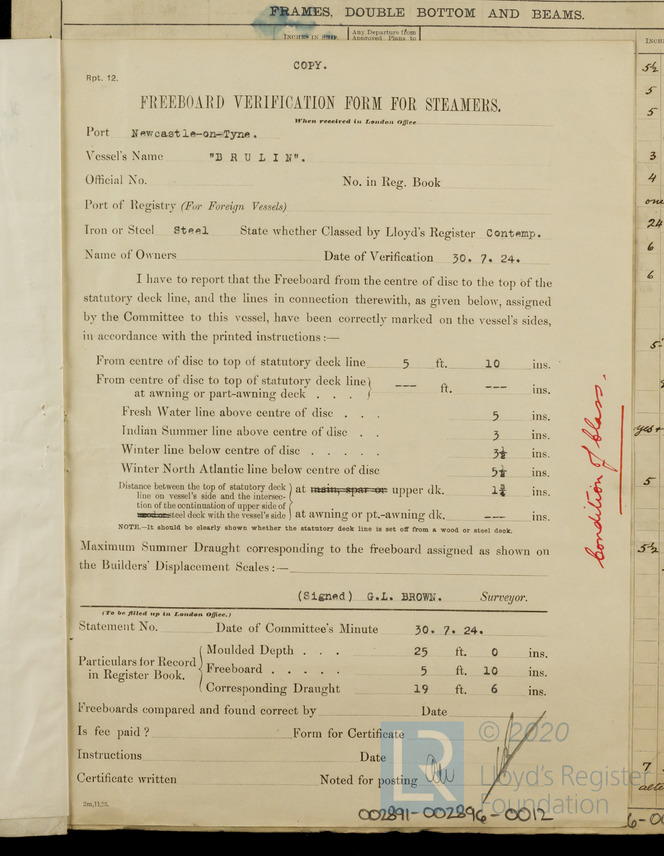 FRAMES, DOUBLE BOTTOM AND BEAMS.
INCHES IN SHIP.
Any Departure from
Approved Plans to
INCH
COPY.
Rpt. 12.
FREEBOARD VERIFICATION FORM FOR STEAMERS.
When received in London Office
Port Newcastle-on-Tyne.
Vessel's Name "B R U L I N".
Official No. No. in Reg. Book
Port of Registry (For Foreign Vessels)
Iron or Steel Steel State whether Classed by Lloyd's Register Contemp.
Name of Owners Date of Verification 30. 7. 24.
I have to report that the Freeboard from the centre of disc to the top of the
statutory deck line, and the lines in connection therewith, as given below, assigned
by the Committee to this vessel, have been correctly marked on the vessel's sides,
in accordance with the printed instructions :—
From centre of disc to top of statutory deck line 5 ft. 10 ins.
From centre of disc to top of statutory deck line
at awning or part-awning deck . . . --- ft. --- ins.
Fresh Water line above centre of disc . . . 5 ins.
Indian Summer line above centre of disc . . 3 ins.
Winter line below centre of disc . . . . . 3½ ins.
Winter North Atlantic line below centre of disc 5½ ins.
Distance between the top of statutory deck
line on vessel's side and the intersec-
tion of the continuation of upper side of
wooden steel deck with the vessel's side
at main, spar or upper dk. 1¾ ins.
at awning or pt.-awning dk. --- ins.
NOTE.—It should be clearly shown whether the statutory deck line is set off from a wood or steel deck.
Maximum Summer Draught corresponding to the freeboard assigned as shown on
the Builders' Displacement Scales :—
(Signed) G.L. BROWN. Surveyor.
(To be filled up in London Office.)
Statement No. Date of Committee's Minute 30. 7. 24.
Particulars for Record
in Register Book.
Moulded Depth . . . 25 ft. 0 ins.
Freeboard . . . . . 5 ft. 10 ins.
Corresponding Draught 19 ft. 6 ins.
Freeboards compared and found correct by Date
Is fee paid ? Form for Certificate
Instructions Date
Certificate written Noted for posting
2m,11,23.
Condition of Class.
5½
5
5
3
4
one
24
6
6
5
yes +
5
5½
7
alte
LR
© 2020
Lloyd's Register
Foundation
002891-002896-0012
6-00